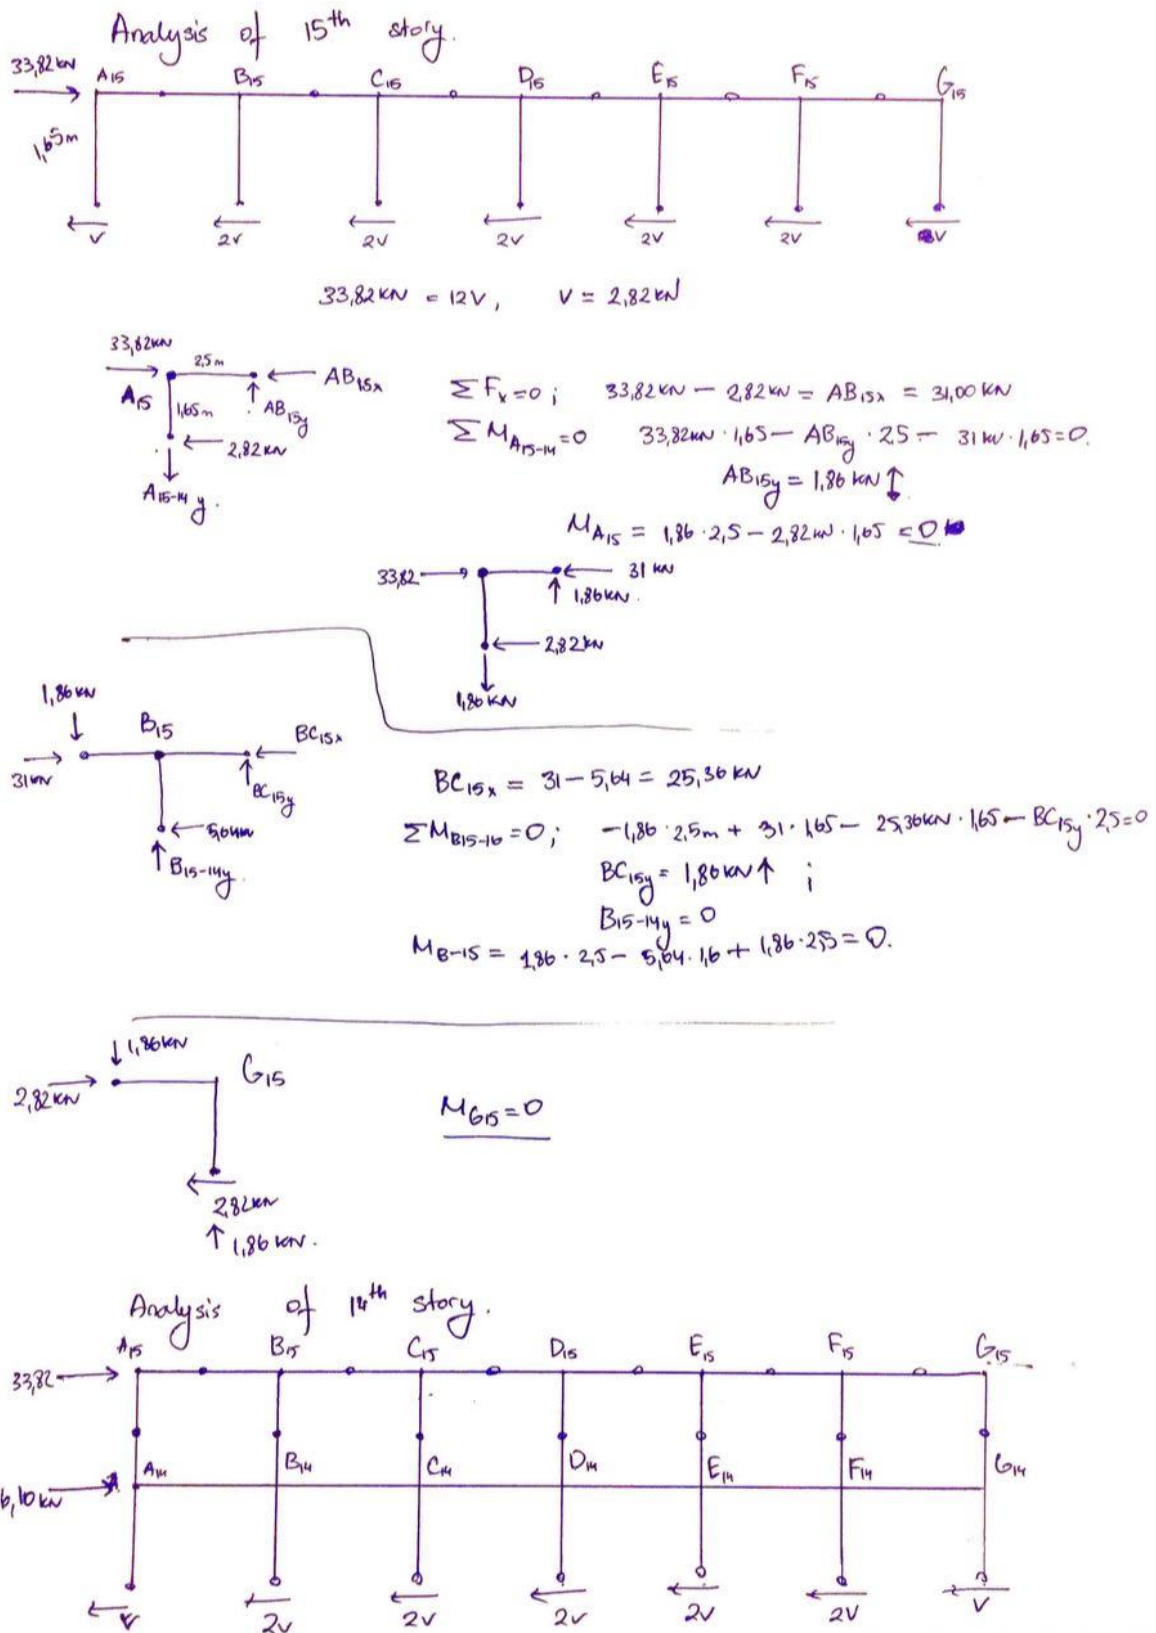 Analysis of 15th story.
33,82 kN
A15 B15 C15 D15 E15 F15 G15
1,65m
V 2V 2V 2V 2V 2V V
33,82 kN = 12V, V = 2,82 kN
33,82 kN
2,5m
AB15x
A15
1,65m
AB15y
2,82 kN
A15-14 y.
ΣFx=0 ; 33,82 kN − 2,82 kN = AB15x = 31,00 kN
ΣMA15-14=0 33,82kN · 1,65 − AB15y · 2,5 − 31 kN · 1,65=0.
AB15y = 1,86 kN ↑
MA15 = 1,86 · 2,5 − 2,82 kN · 1,65 = 0
33,82
31 kN
1,86 kN.
2,82 kN
1,86 kN
1,86 kN
B15
BC15x
31 kN
BC15y
5,64 kN
B15-14y.
BC15x = 31 − 5,64 = 25,36 kN
ΣMB15-16=0 ; −1,86 · 2,5m + 31 · 1,65 − 25,36kN · 1,65 − BC15y · 2,5=0
BC15y = 1,86 kN ↑ ;
B15-14y = 0
MB-15 = 1,86 · 2,5 − 5,64 · 1,6 + 1,86 · 2,5 = 0.
1,86 kN
G15
2,82 kN
MG15=0
2,82 kN
1,86 kN.
Analysis of 14th story.
A15 B15 C15 D15 E15 F15 G15
33,82
A14 B14 C14 D14 E14 F14 G14
6,10 kN
V 2V 2V 2V 2V 2V V